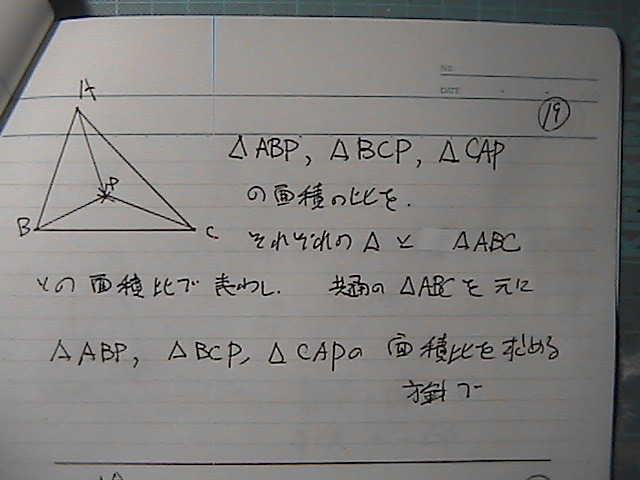 No.
DATE
19
A
P
B
C
△ABP, △BCP, △CAP
の面積の比を.
それぞれの△と △ABC
との面積比で表わし. 共通の△ABCを元に
△ABP, △BCP, △CAPの面積比を求める
方針で